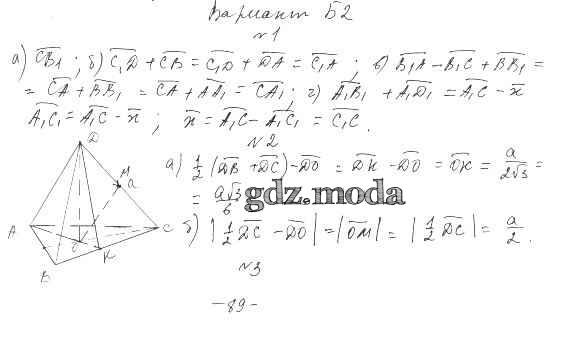 Вариант Б2
№1
а) CB₁ ; б) C₁D + CB = C₁D + DA = C₁A ; в) B₁A − B₁C + BB₁ =
= CA + BB₁ = CA + AA₁ = CA₁ ; г) A₁B₁ + A₁D₁ = A₁C − x
A₁C₁ = A₁C − x ; x = A₁C − A₁C₁ = C₁C .
№2
а) 1/2 (DB + DC) − DO = DK − DO = OK = a/2√3 =
= a√3/6
gdz.moda
б) |1/2 DC − DO| = |OM| = |1/2 DC| = a/2 .
D
M
a
A
O
C
K
B
№3
−89−